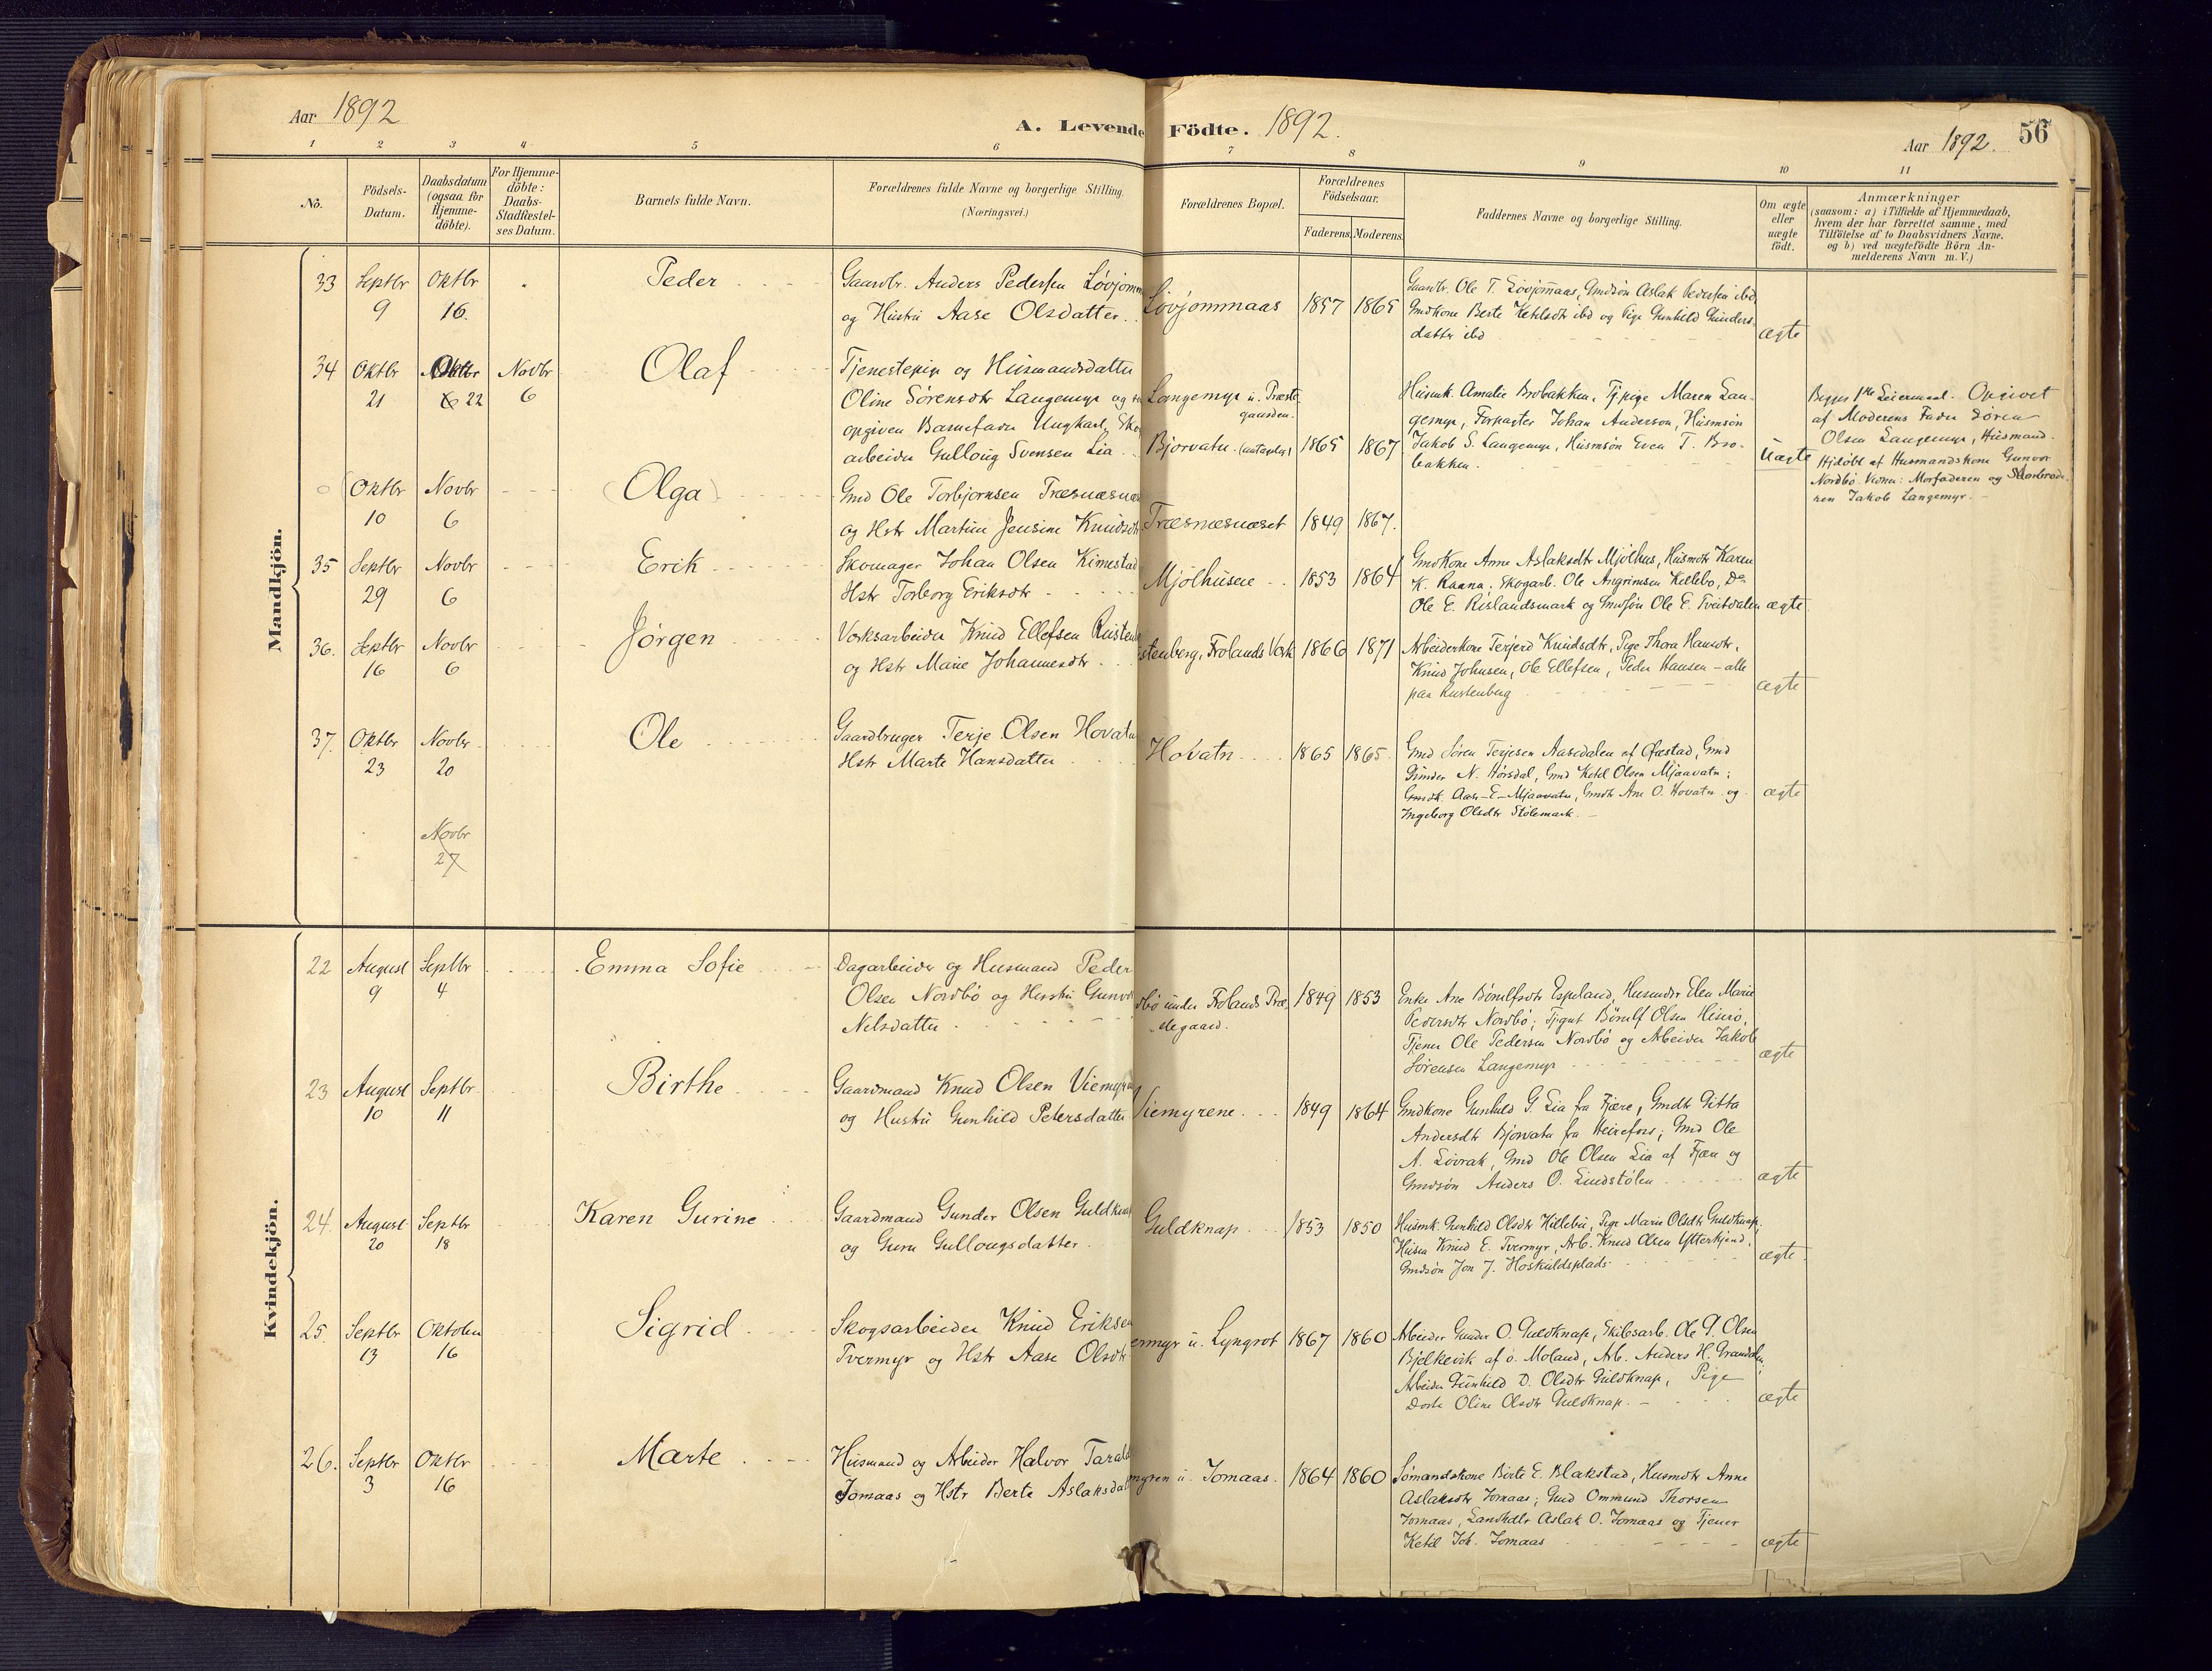 Aar 1892
A. Levende Födte. 1892.
Aar 1892. 56
1 2 3 4 5 6 7 8 9 10 11
No.
Födsels-
Datum.
Daabsdatum
(ogsaa for
Hjemme-
döbte).
For Hjemme-
döbte:
Daabs-
Stadfæstel-
ses Datum.
Barnets fulde Navn.
Forældrenes fulde Navne og borgerlige Stilling.
(Næringsvei.)
Forældrenes Bopæl.
Forældrenes
Födselsaar.
Faderens. Moderens.
Faddernes Navne og borgerlige Stilling.
Om ægte
eller
uægte
födt.
Anmærkninger
(saasom: a) i Tilfælde af Hjemmedaab,
hvem der har forrettet samme, med
Tilföielse af to Daabsvidners Navne.
og b) ved uægtefödte Börn An-
melderens Navn m. V.)
Mandkjön.
33 Septbr 9 Oktbr 16. Peder
Gaardbr. Anders Pedersen Løvjomm
og Hustru Aase Olsdatter.
Løvjommaas 1857 1865
Gaardbr. Ole T. Løvjomaas, Gmdsøn Aslak Pedersen ibd,
Gmdkone Berte Ketilsdtr ibd og Pige Gunhild Gunders-
datter ibd
ægte
34 Oktbr 21 Oktbr 22 Novbr 6 Olaf
Tjenestepige og Husmandsdatter
Oline Sørensdtr Langemyr og
opgiven Barnefader Ungkarl, Sko
arbeider Gulloug Svensen Lia
Langemyr u. Præste-
gaarden.
Bjorvatn. (antagelig) 1865 1867
Husmk. Amalie Brobakken, Tj.pige Maren Lan-
gemyr, Forpagter Johan Anderson, Husmsøn
Jakob S. Langemyr, Husmsøn Even T. Bro-
bakken.
Uægte
Begges 1ste Leiermaal. Opgivet
af Moderens Fader Søren
Olsen Langemyr, Husmand.
Hjdøbt af Husmandskone Gunvor
Nordbö. Vidner: Morfaderen og Morbrode-
ren Jakob Langemyr.
Oktbr 10 Novbr 6 (Olga)
Gmd Ole Torbjørnsen Træsnæsnæs
og Hstr Martine Jensine Knudsdtr
Træsnæsnæset 1849 1867.
35 Septbr 29 Novbr 6 Erik
Skomager Johan Olsen Kimestad
Hstr Torborg Eriksdtr
Mjølhusene 1853 1864
Gmdkone Anne Aslaksdtr Mjølhus, Husmdtr Karen
K. Raana, Skogarb. Ole Angrimsen Killebo, Do
Ole E. Rislandsmark og Gmdsøn Ole E. Tveitdalen
ægte
36. Septbr 16 Novbr 6 Jörgen
Værksarbeider Knud Ellefsen Rusten
og Hstr Marie Johannesdtr
stenberg, Frolands Værk 1866 1871
Arbeiderkone Terjerd Knudsdtr, Pige Thora Hansdtr,
Knud Johnsen, Ole Ellefsen, Peder Hansen - alle
paa Rustenberg
ægte
37. Oktbr 23 Novbr 20 Ole
Gaardbruger Terje Olsen Hovatn
Hstr Marte Hansdatter
Hovatn 1865 1865
Gmd Søren Terjesen Aasedalen af Øiestad, Gmd
Gunder N. Hörsdal, Gmd Ketil Olsen Mjaavatn;
Gmdk. Aase E. Mjaavatn, Gmdtr Ane O. Hovatn og
Ingeborg Olsdtr Stølemark.
ægte
Novbr
27
Kvindekjön.
22 August 9 Septbr 4 Emma Sofie
Dagarbeider og Husmand Peder
Olsen Nordbö og Hustru Gunvor
Nilsdatter
dbö under Frolands Præ-
stegaard. 1849 1853
Enke Ane Börulfsdtr Espeland, Husmdtr Elen Marie
Pedersdtr Nordbö; Tjgut Börulf Olsen Hiserö,
Tjener Ole Pedersen Nordbö og Arbeider Jakob
Sørensen Langemyr
ægte
23 August 10 Septbr. 11 Birthe
Gaardmand Knud Olsen Viemyren
og Hustru Gunhild Petersdatter
Viemyrene 1849 1864
Gmdkone Gunhild G. Lia fra Fjære, Gmdtr Gitta
Andersdtr Bjorvatn fra Heirefoss; Gmd Ole
A. Lövrak, Gmd Ole Olsen Lia af Fjære og
Gmdsøn Anders O. Lindstölen
ægte
24. August 20 Septbr 18 Karen Gurine
Gaardmand Gunder Olsen Guldknap
og Guru Gullougsdatter.
Guldknap 1853 1850
Husmk. Gunhild Olsdtr Hillebu, Pige Marie Olsdtr Guldknap,
Husm Knud E. Tvermyr, Arb. Knud Olsen Ytterkjend,
Gmdsön Jon J. Hoskuldsplads
ægte
25. Septbr 13 Oktober 16 Sigrid
Skogsarbeider Knud Eriksen
Tvermyr og Hstr Aase Olsdtr
ermyr u. Lyngrot 1867 1860
Arbeider Gunder O. Guldknap, Skibsarb. Ole P. Olsen
Bjelkevik af ö. Moland, Arb. Anders H. Grandalen;
Arbeider Gunhild D. Olsdtr Guldknap, Pige
Dorte Oline Olsdtr Guldknap.
ægte
26. Septbr 3 Oktbr 16 Marte
Husmand og Arbeider Halvor Tarald
Jomaas og Hstr Berte Aslaksdat
myren u. Jomaas. 1864 1860
Sømandskone Birte E. Blakstad, Husmdtr Anne
Aslaksdtr Jomaas; Gmd Ommund Thorsen
Jomaas, Landhdlr Aslak O. Jomaas og Tjener
Ketil Joh. Jomaas
ægte